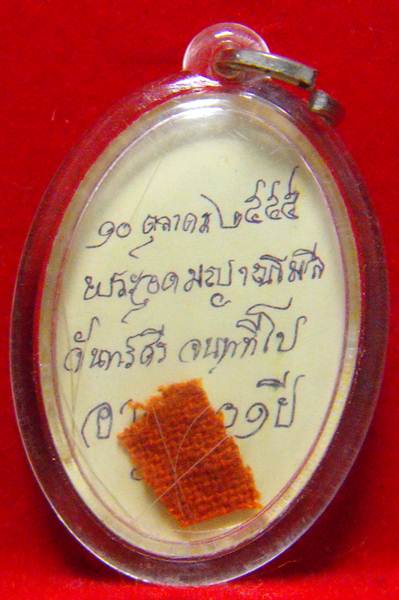 ๑๐ ตุลาคม ๒๕๕๕
พระอุดมญาณโมลี
จันทร์ศรี จนฺททีโป
๑๐๑ปี